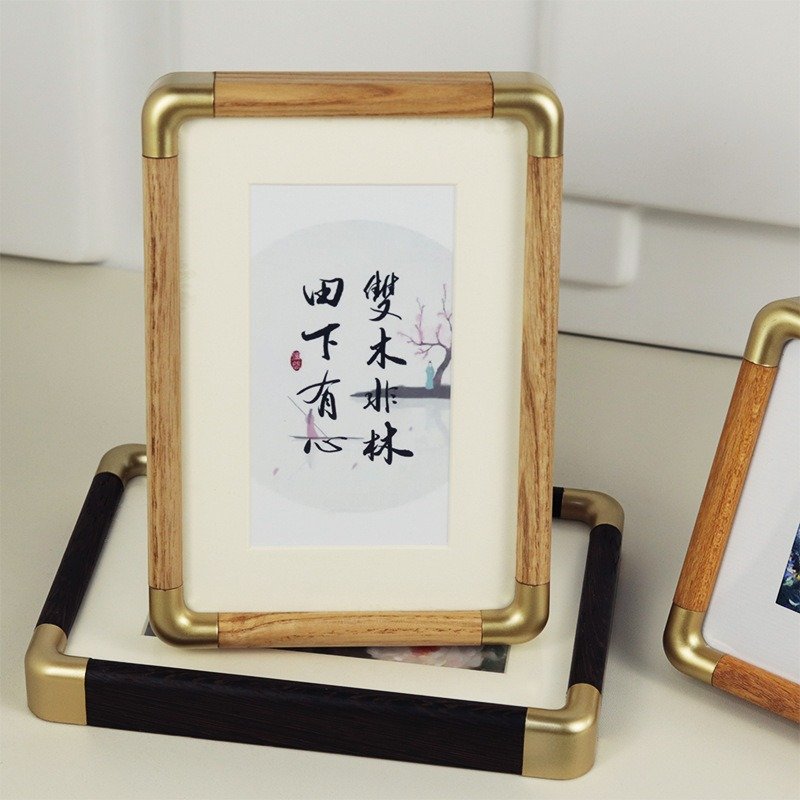 雙木非林
田下有心